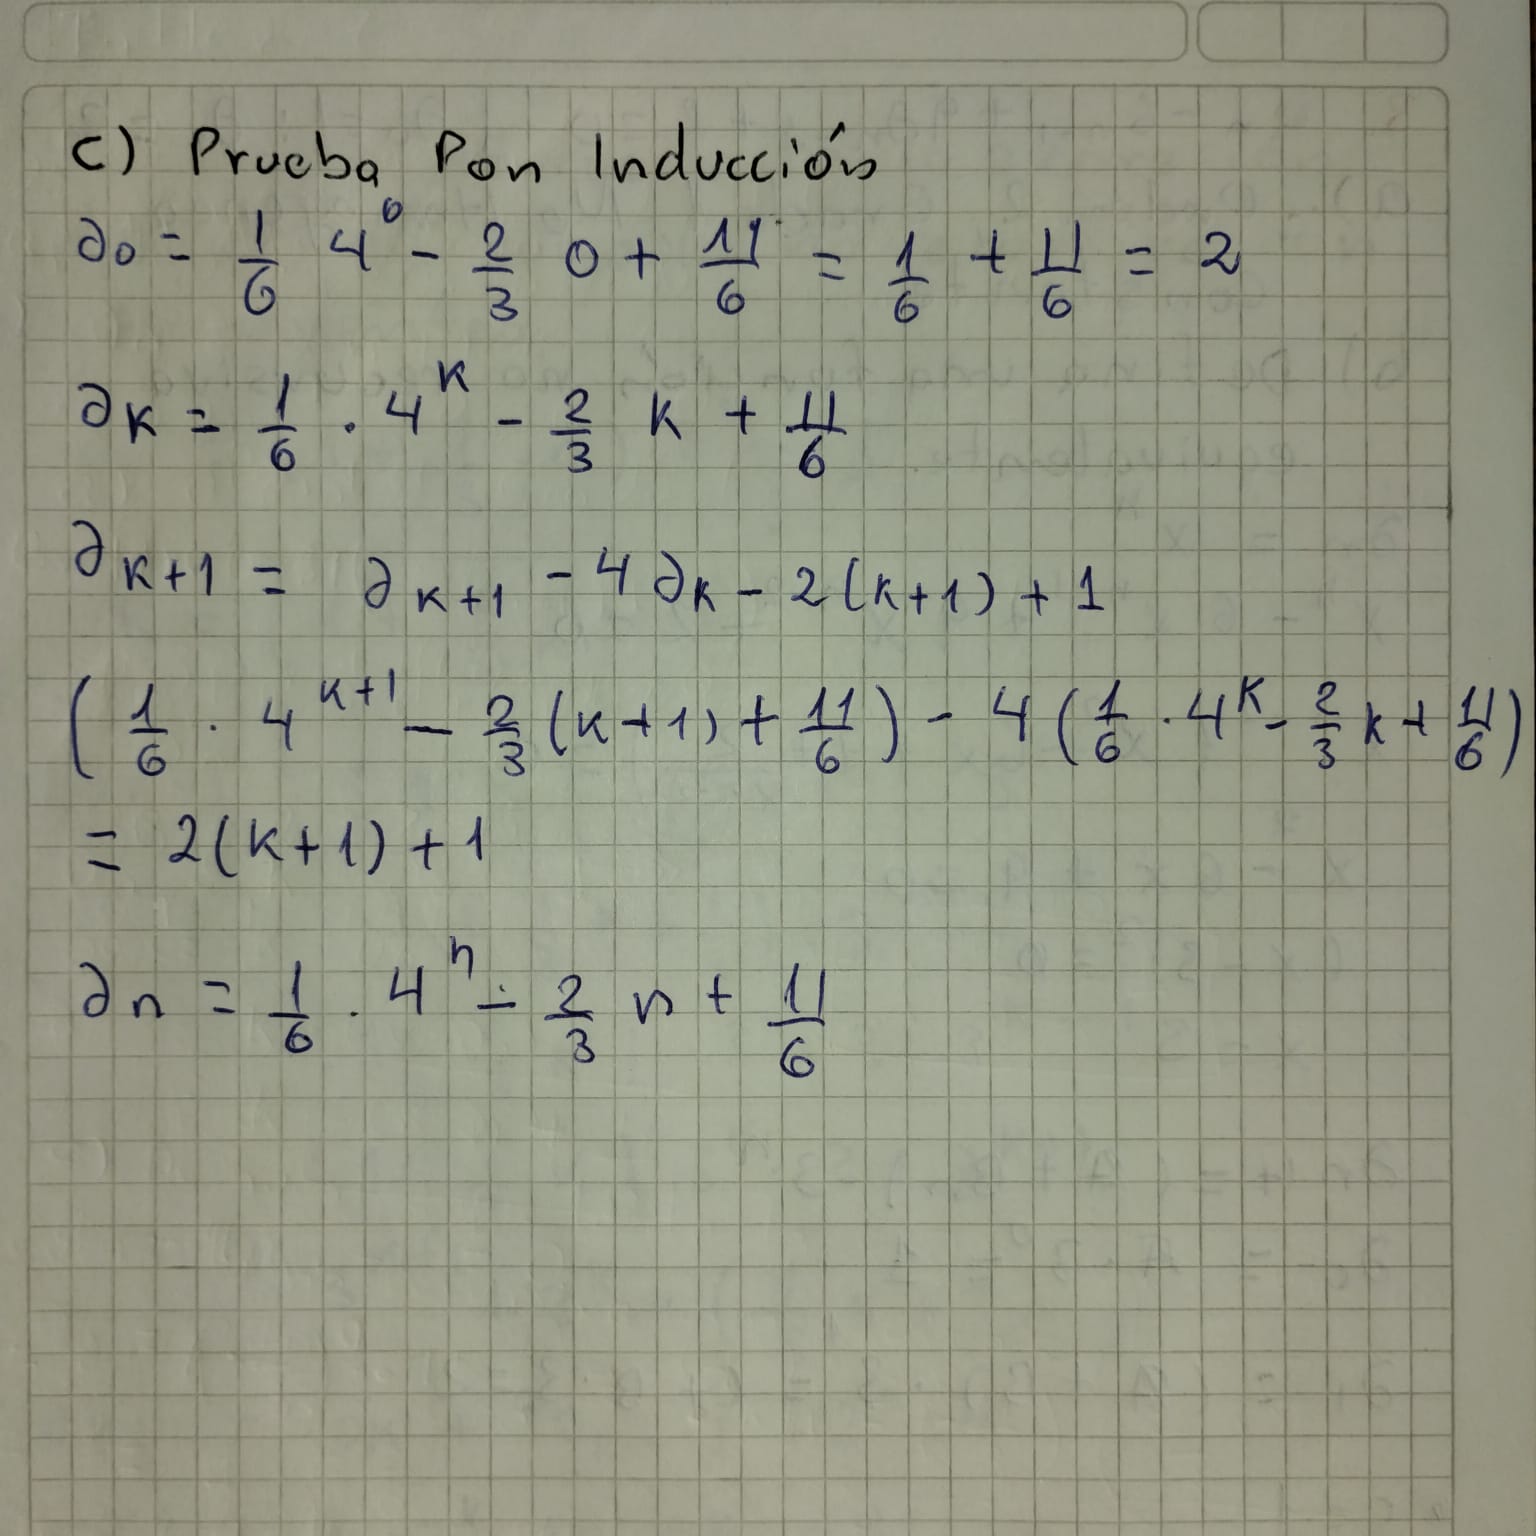 c) Prueba Por Inducción
a₀ = 1/6 4⁰ - 2/3 0 + 11/6 = 1/6 + 11/6 = 2
aₖ = 1/6 · 4ᵏ - 2/3 k + 11/6
aₖ₊₁ = aₖ₊₁ - 4aₖ - 2(k+1) + 1
(1/6 · 4ᵏ⁺¹ - 2/3 (k+1) + 11/6) - 4(1/6 · 4ᵏ - 2/3 k + 11/6)
= 2(k+1) + 1
aₙ = 1/6 · 4ⁿ - 2/3 n + 11/6